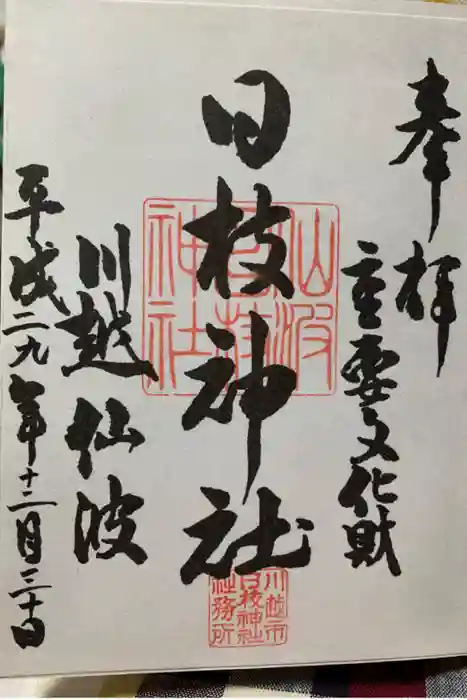 奉拝
重要文化財
日枝神社
仙波
日枝
神社
川越市
日枝神社
社務所
川越仙波
平成二九年十二月三十日